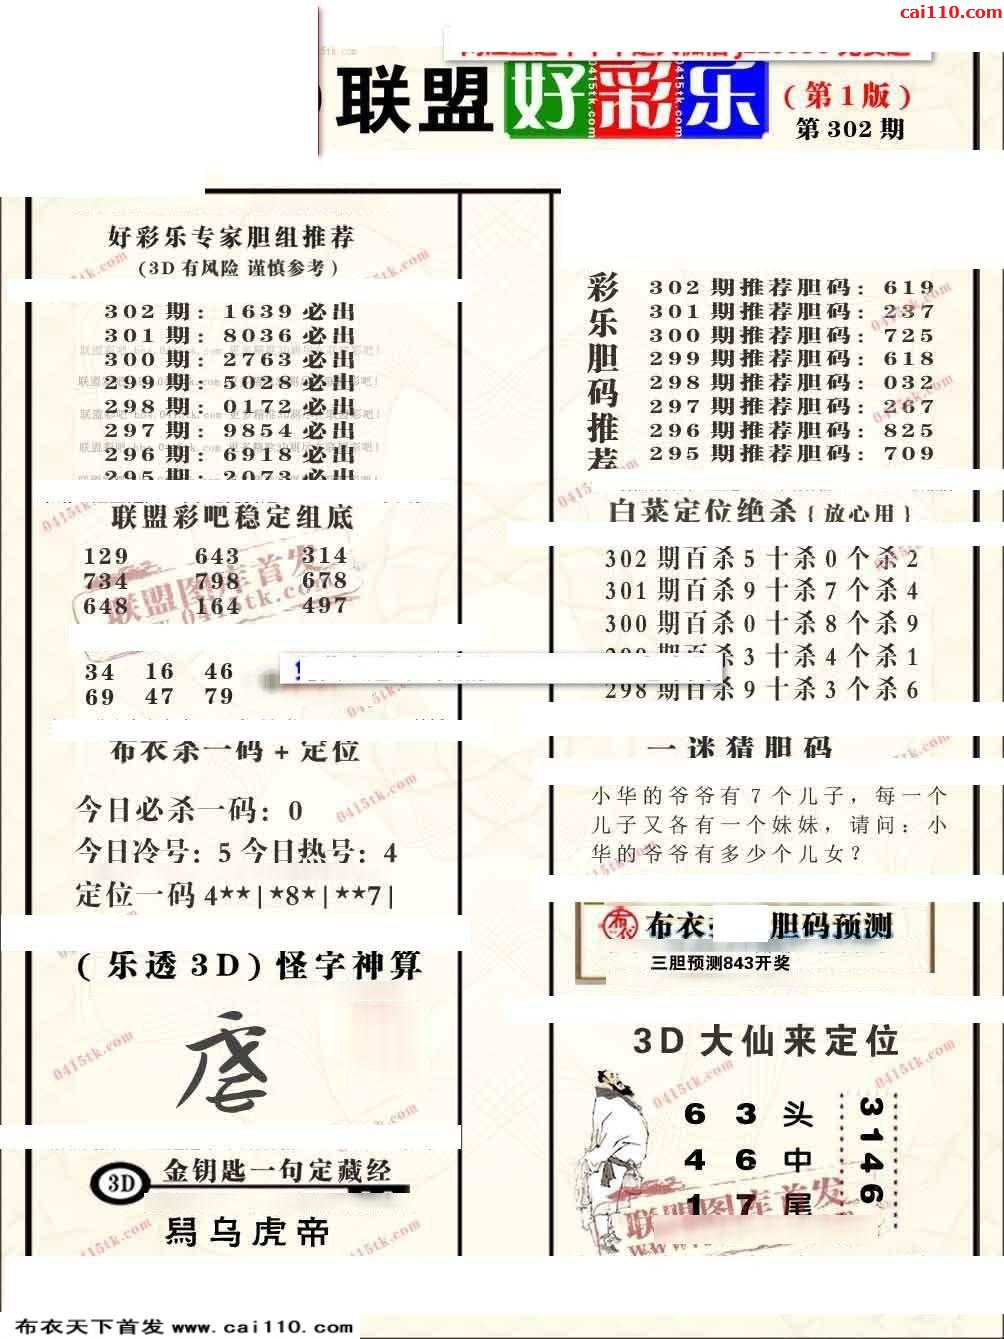 cai110.com
联盟好彩乐
(第1版)
第302期
好彩乐专家胆组推荐
(3D有风险 谨慎参考)
302期: 1639必出
301期: 8036必出
300期: 2763必出
299期: 5028必出
298期: 0172必出
297期: 9854必出
296期: 6918必出
295期: 2073必出
联盟彩吧稳定组底
129 643 314
734 798 678
648 164 497
34 16 46
69 47 79
布衣杀一码+定位
今日必杀一码: 0
今日冷号: 5 今日热号: 4
定位一码4**|*8*|**7|
(乐透3D)怪字神算
3D 金钥匙一句定藏经
舄乌虎帝
彩乐胆码推荐
302期推荐胆码: 619
301期推荐胆码: 237
300期推荐胆码: 725
299期推荐胆码: 618
298期推荐胆码: 032
297期推荐胆码: 267
296期推荐胆码: 825
295期推荐胆码: 709
白菜定位绝杀{放心用}
302期百杀5十杀0个杀2
301期百杀9十杀7个杀4
300期百杀0十杀8个杀9
299期百杀3十杀4个杀1
298期百杀9十杀3个杀6
一迷猜胆码
小华的爷爷有7个儿子，每一个
儿子又各有一个妹妹，请问：小
华的爷爷有多少个儿女？
布衣 胆码预测
三胆预测843开奖
3D大仙来定位
6 3头
4 6中
1 7尾
3146
联盟图库首发
0415tk.com
布衣天下首发 www.cai110.com